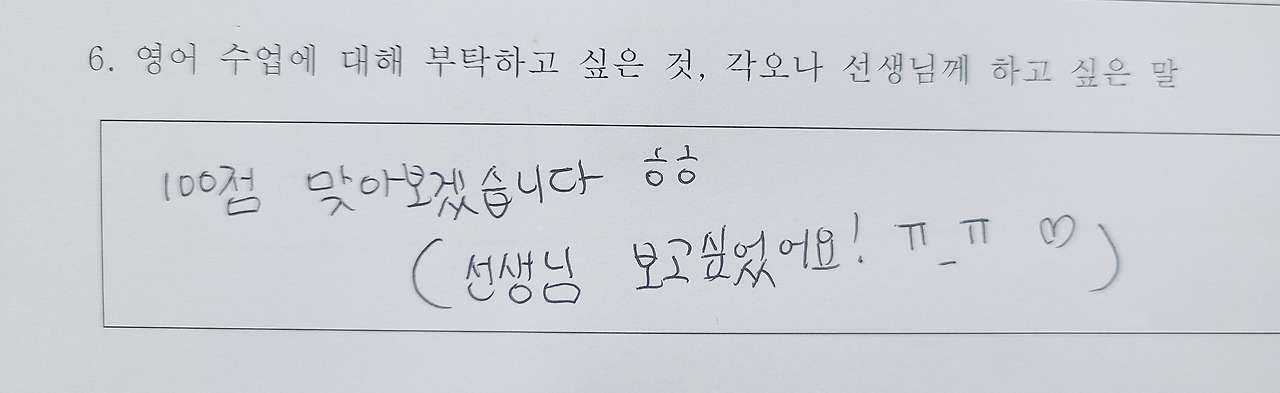 6. 영어 수업에 대해 부탁하고 싶은 것, 각오나 선생님께 하고 싶은 말
100점 맞아보겠습니다 ㅎㅎ
(선생님 보고싶었어요! ㅠ_ㅠ ♡)